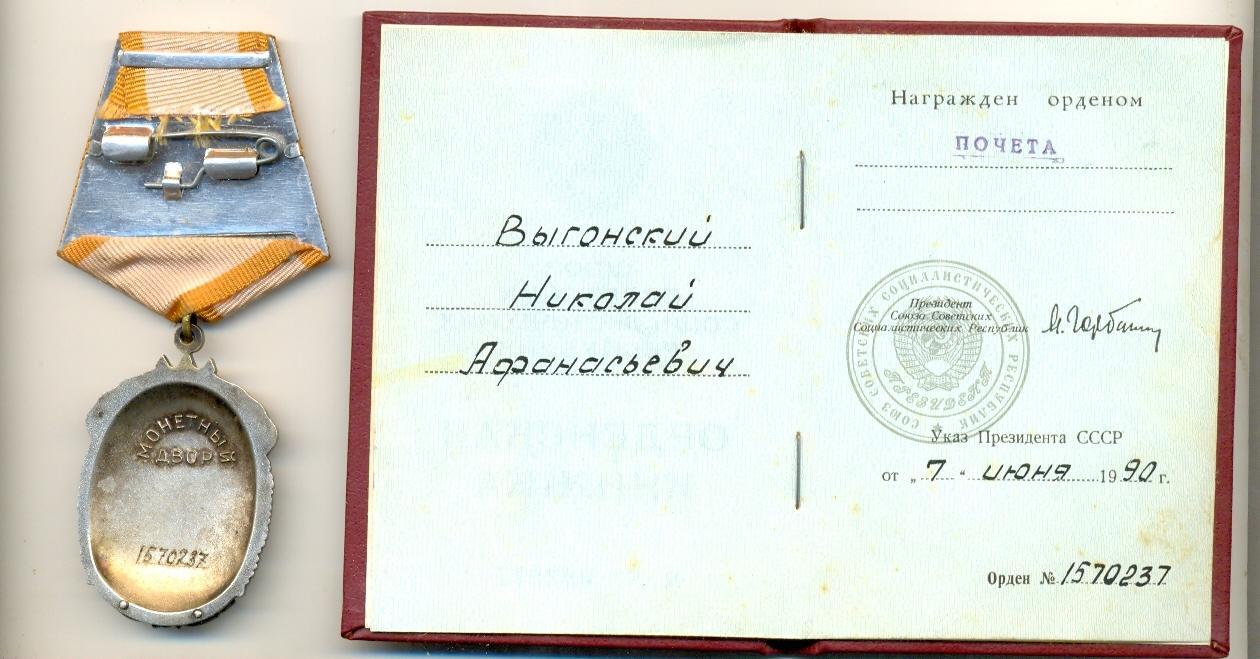 МОНЕТНЫЙ
ДВОР
1570237
Выгонский
Николай
Афанасьевич
Награжден орденом
ПОЧЕТА
СОЮЗ СОВЕТСКИХ СОЦИАЛИСТИЧЕСКИХ РЕСПУБЛИК
ПРЕЗИДЕНТ
Президент
Союза Советских
Социалистических Республик
М. Горбачев
Указ Президента СССР
от „ 7 “ июня 1990 г.
Орден № 1570237